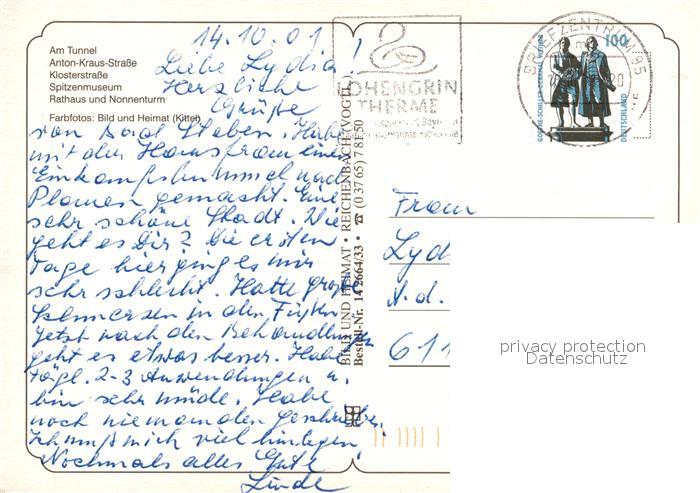 Am Tunnel
Anton-Kraus-Straße
Klosterstraße
Spitzenmuseum
Rathaus und Nonnenturm
Farbfotos: Bild und Heimat (Kittel)
14.10.01.
Liebe Lydia!
Herzliche
Grüße
von Bad Steben. Habe
mit der Hausfrau einen
Einkaufsbummel nach
Plauen gemacht. Eine
sehr schöne Stadt. Wie
geht es Dir? Die ersten
Tage hier ging es mir
sehr schlecht. Hatte große
Schmerzen in den Füßen
Jetzt nach den Behandlungen
geht es etwas besser. Habe
tägl. 2-3 Anwendungen u.
bin sehr müde. Habe
noch niemanden geschrieben.
Ich muß mich viel hinlegen.
Nochmals alles Gute
Linde
BILD UND HEIMAT • REICHENBACH (VOGTL.)
Bestell-Nr. 14 2664/33 • ☎ (0 37 65) 7 81 50
LOHENGRIN
THERME
BRIEFZENTRUM 95
100
GOETHE-SCHILLER-DENKMAL WEIMAR
DEUTSCHLAND
Frau
Lyd
A.d.
611
privacy protection
Datenschutz